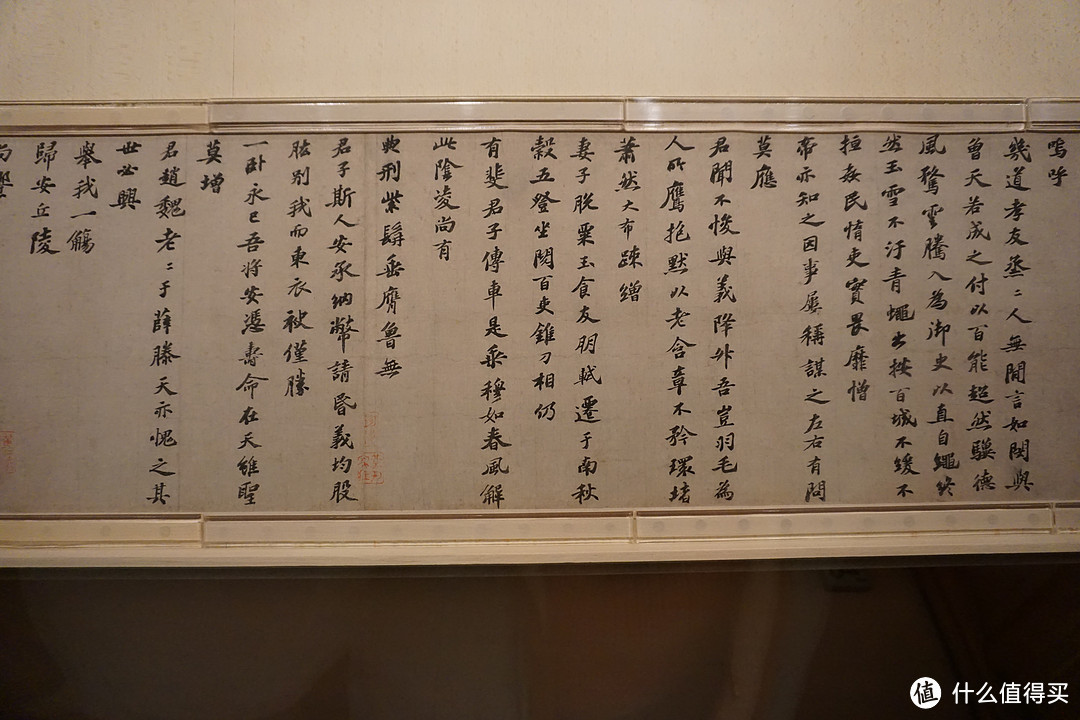 嗚呼
幾道孝友烝〻人無間言如閔與
曾天若成之付以百能超然驥德
風騖雲騰入為御史以直自繩終
然玉雪不汙青蠅出按百城不緩不
搄姦民惰吏實畏靡憎
帝亦知之因事屢稱謀之左右有問
莫應
君聞不悛與義降升吾豈羽毛為
人所鷹抱默以老含章不矜環堵
蕭然大布疎繒
妻子脫粟玉食友朋軾遷于南秋
穀五登坐閱百吏錐刀相仍
有斐君子傳車是乘穆如春風解
此陰凌尚有
典刑紫髯垂膺魯無
君子斯人安承納幣請昏義均股
肱別我而東衣袂僅勝
一卧永已吾將安憑壽命在天雖聖
莫增
君趙魏老〻于薛滕天亦愧之其
世必興
舉我一觴
歸安丘陵
尚饗
值 什么值得买